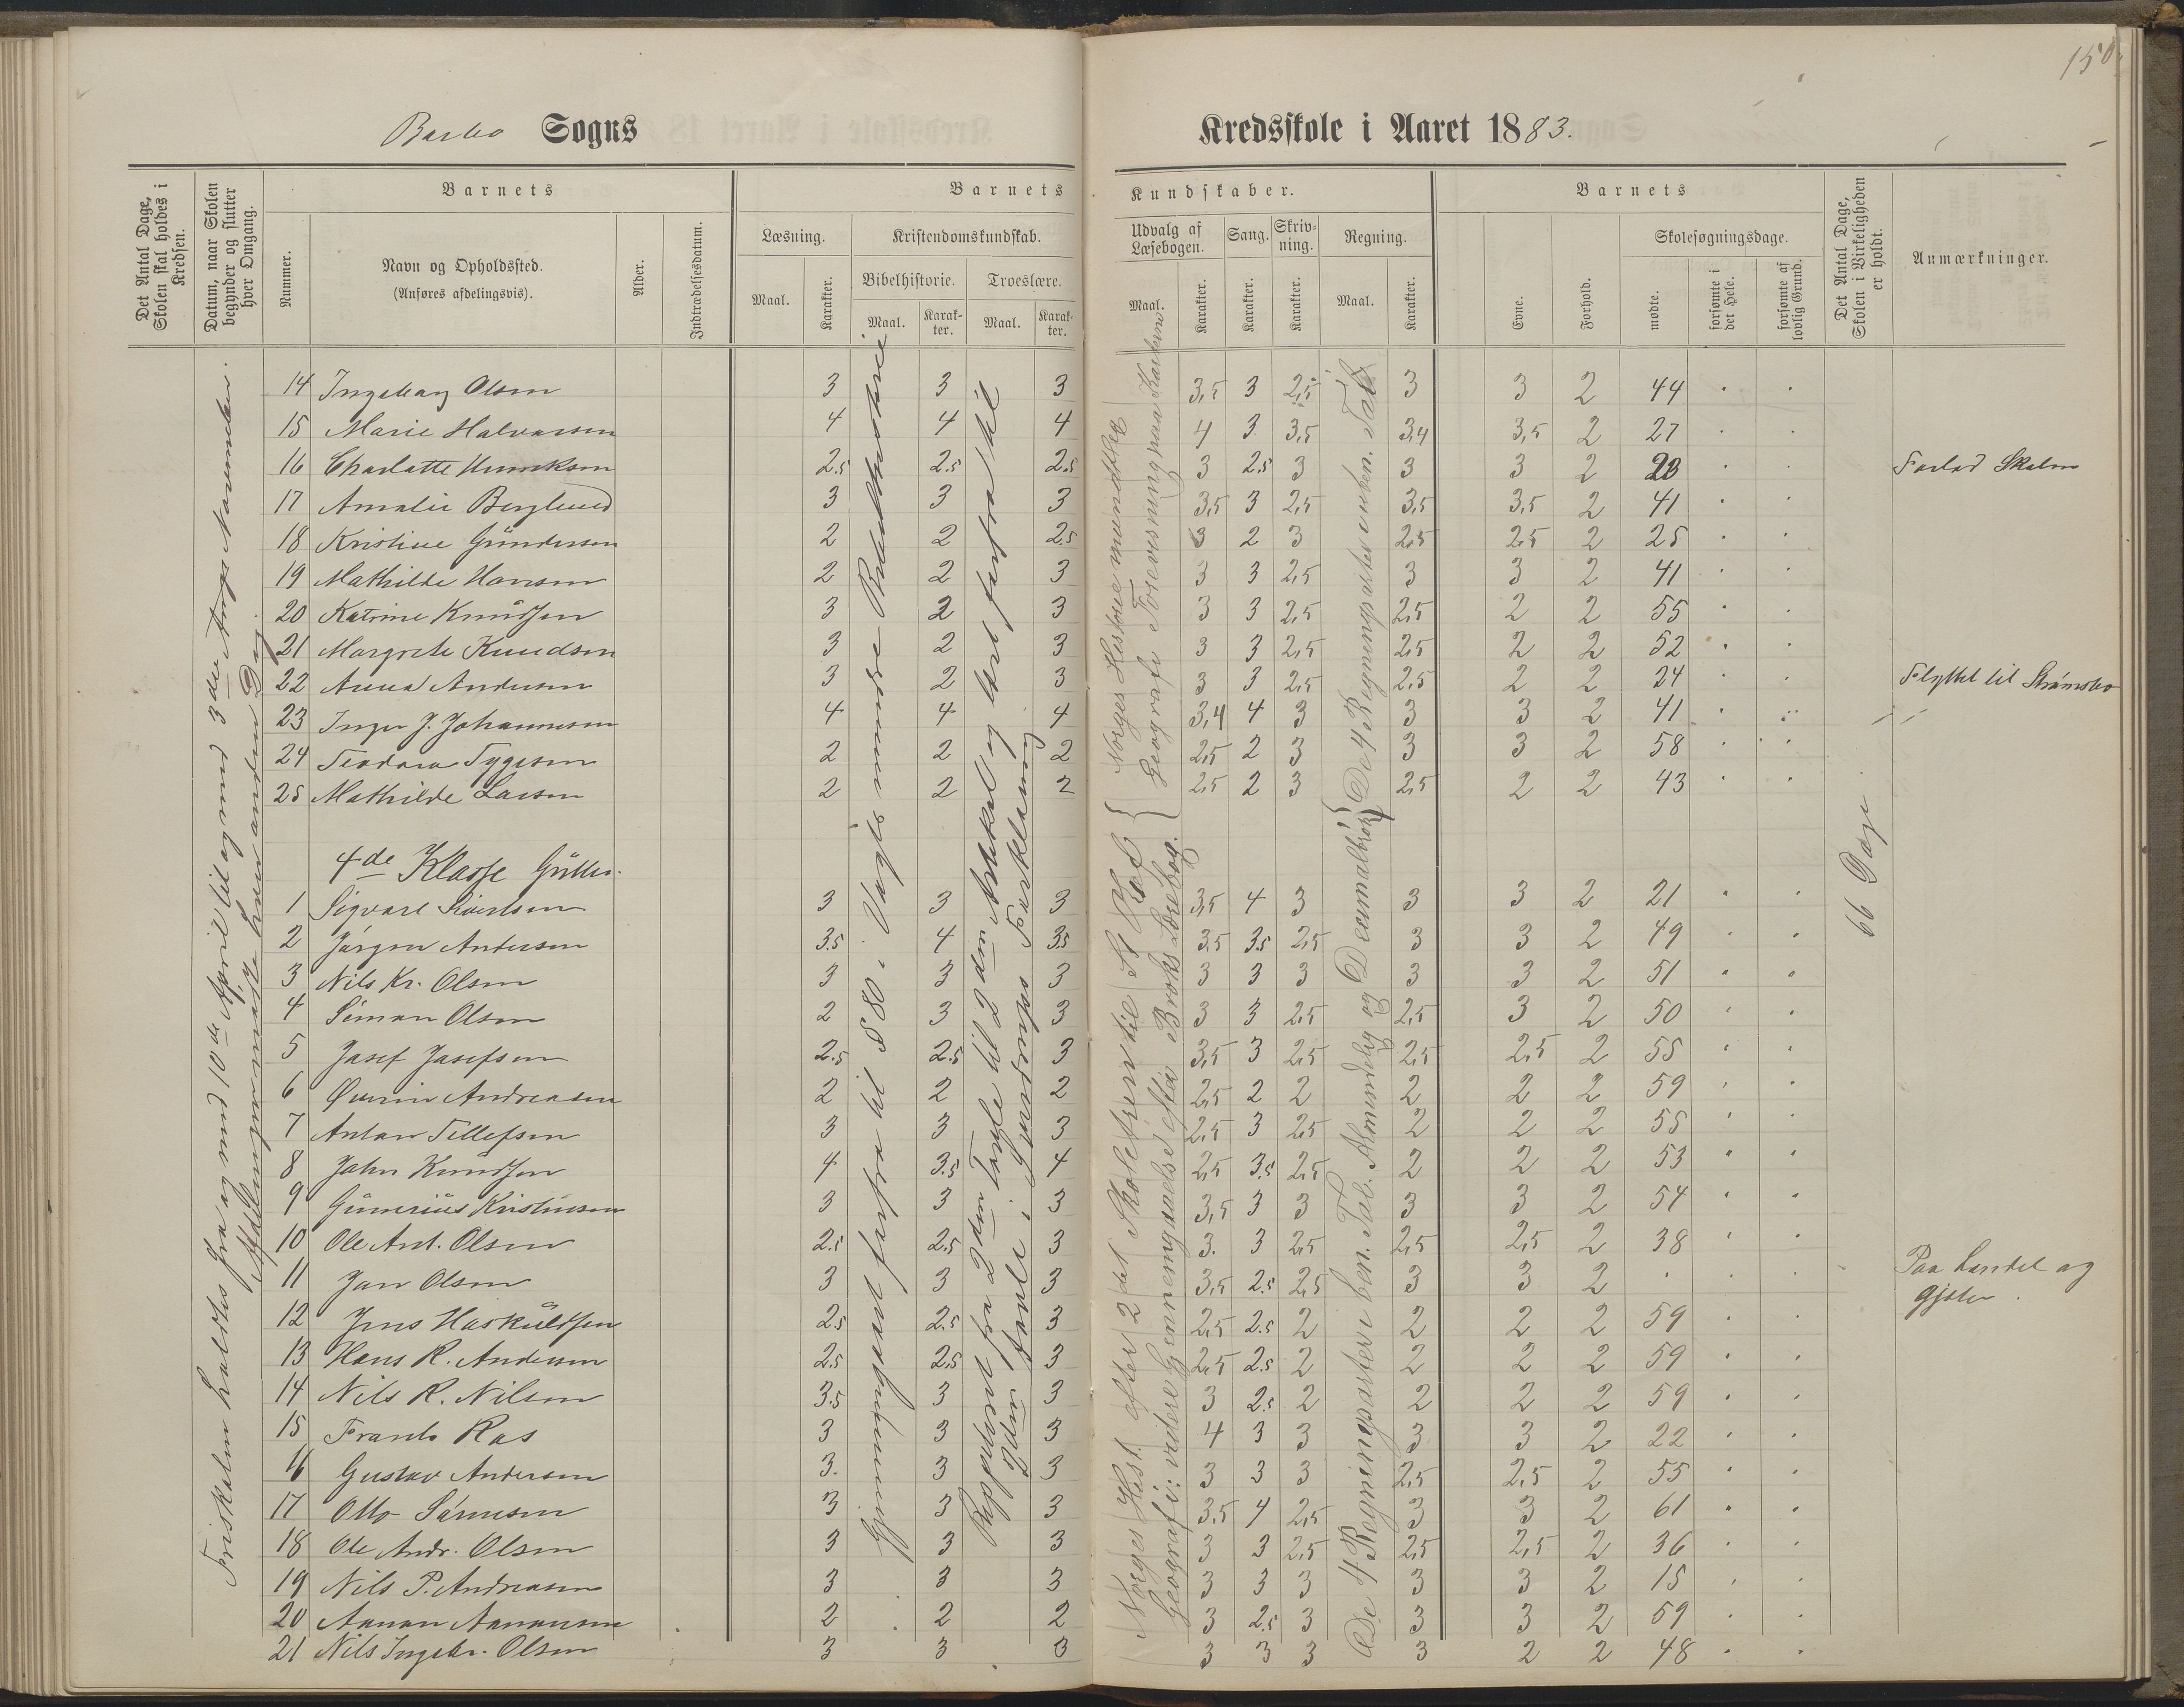 150
Barbo Sogns
Kredsskole i Aaret 1883.
Det Antal Dage, Skolen skal holdes i Kredsen.
Datum, naar Skolen begynder og slutter hver Omgang.
Nummer.
Barnets
Navn og Opholdssted.
(Anføres afdelingsvis).
Alder.
Indtrædelsesdatum.
Barnets
Læsning.
Maal.
Karakter.
Kristendomskundskab.
Bibelhistorie.
Maal.
Karakter.
Troeslære.
Maal.
Karakter.
Kundskaber.
Udvalg af Læsebogen.
Maal.
Karakter.
Sang.
Karakter.
Skrivning.
Karakter.
Regning.
Maal.
Karakter.
Barnets
Evne.
Forhold.
Skolesøgningsdage.
mødte.
forsømte i det Hele.
forsømte af lovlig Grund.
Det Antal Dage, Skolen i Virkeligheden er holdt.
Anmærkninger.
14 Ingeborg Olsen 3 3 3 3,5 3 2,5 3 3 2 44
15 Marie Halvorsen 4 4 4 4 3 3,5 3,4 3,5 2 27
16 Charlotte Henriksen 2.5 2.5 2.5 3 2.5 3 3 3 2 23 Forlod Skolen
17 Amalie Berglund 3 3 3 3,5 3 2,5 3,5 3,5 2 41
18 Kristine Gundersen 2 2 2.5 3 2 3 2,5 2,5 2 25
19 Mathilde Hansen 2 2 3 3 3 2,5 3 3 2 41
20 Katrine Knudsen 3 2 3 3 3 2,5 2,5 2 2 55
21 Margrete Knudsen 3 2 3 3 3 2,5 2,5 2 2 52
22 Anna Andersen 3 2 3 3 3 2,5 2,5 2 2 24 Flyttet til Strømsbo
23 Inger J. Johannesen 4 4 4 3,4 4 3 3 3 2 41
24 Teodora Tygesen 2 2 2 2,5 2 3 3 3 2 58
25 Mathilde Larsen 2 2 2 2,5 2 3 2,5 2 2 43
4de Klasse Gutter.
1 Sigvart Sivertsen 3 3 3 3,5 4 3 3 3 2 21
2 Jørgen Andersen 3.5 4 3.5 3,5 3.5 2,5 3 3 2 49
3 Nils Kr. Olsen 3 3 3 3 3 3 3 3 2 51
4 Simon Olsen 2 3 3 3 3 2,5 2,5 3 2 50
5 Josef Josefsen 2.5 2.5 3 3,5 3 2,5 2,5 2,5 2 55
6 Øvrin Andreasen 2 2 2 2,5 2 2 2 2 2 59
7 Anton Tellefsen 3 3 3 2,5 3 2,5 2 2 2 55
8 John Knudsen 4 3.5 4 2,5 3.5 2,5 2 2 2 53
9 Gunerius Kristensen 3 3 3 3,5 3 3 3 3 2 54
10 Ole Ant. Olsen 2.5 2.5 3 3. 3 2,5 2,5 2,5 2 38
11 Jon Olsen 3 3 3 3,5 2.5 2,5 3 3 2 Paa Landet og
Gjøler.
12 Jens Haskuldsen 2.5 2.5 3 2,5 2.5 2 2 2 2 59
13 Hans R. Andersen 2.5 2.5 3 2,5 2.5 2 2 2 2 59
14 Nils R. Nilsen 3.5 3 3 3 2.5 2 2 2 2 59
15 Frants Ras 3 3 3 4 3 3 3 3 2 22
16 Gustav Andersen 3. 3 3 3 3 3 2,5 2,5 2 55
17 Otto Sørensen 3 3 3 3,5 4 2,5 3 3 2 61
18 Ole Andr. Olsen 3 3 3 3 3 2,5 2,5 2,5 2 36
19 Nils P. Andreasen 3 3 3 3 3 3 3 3 2 15
20 Aanon Aanonsen 2 2 2 3 2.5 3 3 3 2 59
21 Nils Ingebr. Olsen 3 3 3 3 3 3 3 2 2 48
Friskolen holdtes fra og med 10de April til og med 3die Novemder.
Afdelingerne mødte hver anden Dag.
Gjennemgaaet forfra til § 80 i Vogts mindre Bibelhistorie
Reppeteret fra 2den Tavle til 2den Artikel og lært forfra til
3den Tavle i Sverdrups Forklaring
Norges Historie mundtlig
Geografi Forevisning paa Kartene
Norges Hist. efter 2det Skoletrin til St Olaf
Geografi: videre Gennemgaaelse efter Broks Lærebog.
De 4 Regningsarter i uben. Tal
De 4 Regningsarter i ben. Tal. Almindelig og Decimalbrøk
66 Dage